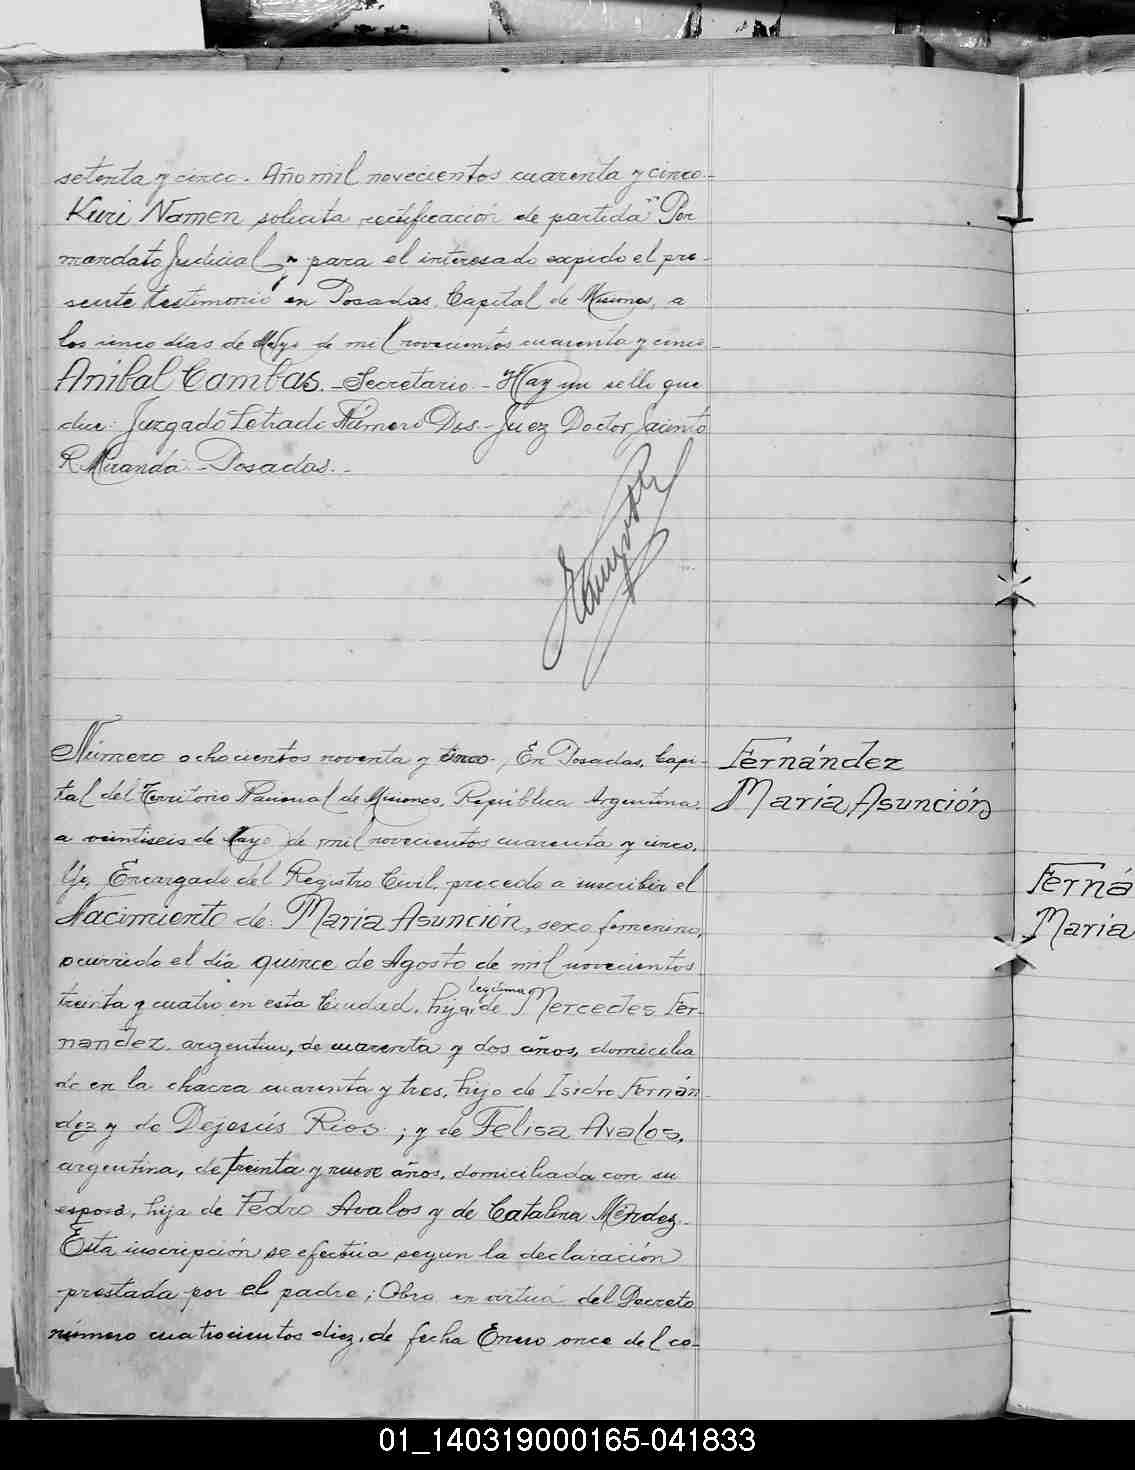 setenta y cinco. Año mil novecientos cuarenta y cinco.-
Kuri Namen solicita rectificación de partida" Por
mandato Judicial y para el interesado expido el pre-
sente testimonio en Posadas, Capital de Misiones, a
los cinco días de Mayo de mil novecientos cuarenta y cinco.-
Anibal Cambas.- Secretario.- Hay un sello que
dice: Juzgado Letrado Número Dos.- Juez Doctor Jacinto
R. Miranda.- Posadas.-
Número ochocientos noventa y cinco.- En Posadas, Capi-
tal del Territorio Nacional de Misiones, República Argentina,
a veintiseis de Mayo de mil novecientos cuarenta y cinco.
Yo, Encargado del Registro Civil, procedo a inscribir el
Nacimiento de: María Asunción, sexo femenino,
ocurrido el día quince de Agosto de mil novecientos
treinta y cuatro en esta Ciudad, hija legítima de Mercedes Fer-
nandez, argentino, de cuarenta y dos años, domicilia
do en la chacra cuarenta y tres, hijo de Isidro Fernán-
dez y de Dejesús Rios; y de Felisa Avalos,
argentina, de treinta y nueve años, domiciliada con su
esposo, hija de Pedro Avalos y de Catalina Méndez.-
Esta inscripción se efectúa segun la declaración
prestada por el padre; Obro en virtud del Decreto
número cuatrocientos diez, de fecha Enero once del co-
Fernández
María Asunción
Ferná
María
01_140319000165-041833